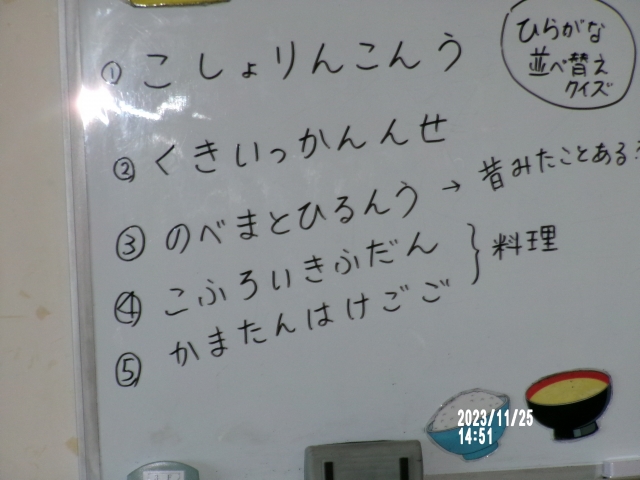 ひらがな
並べ替え
クイズ
① こしょりんこんう
② くきいっかんんせ
③ のべまとひるんう → 昔みたことある?
④ こふろいきふだん
⑤ かまたんはけごご
} 料理
2023/11/25
14:51